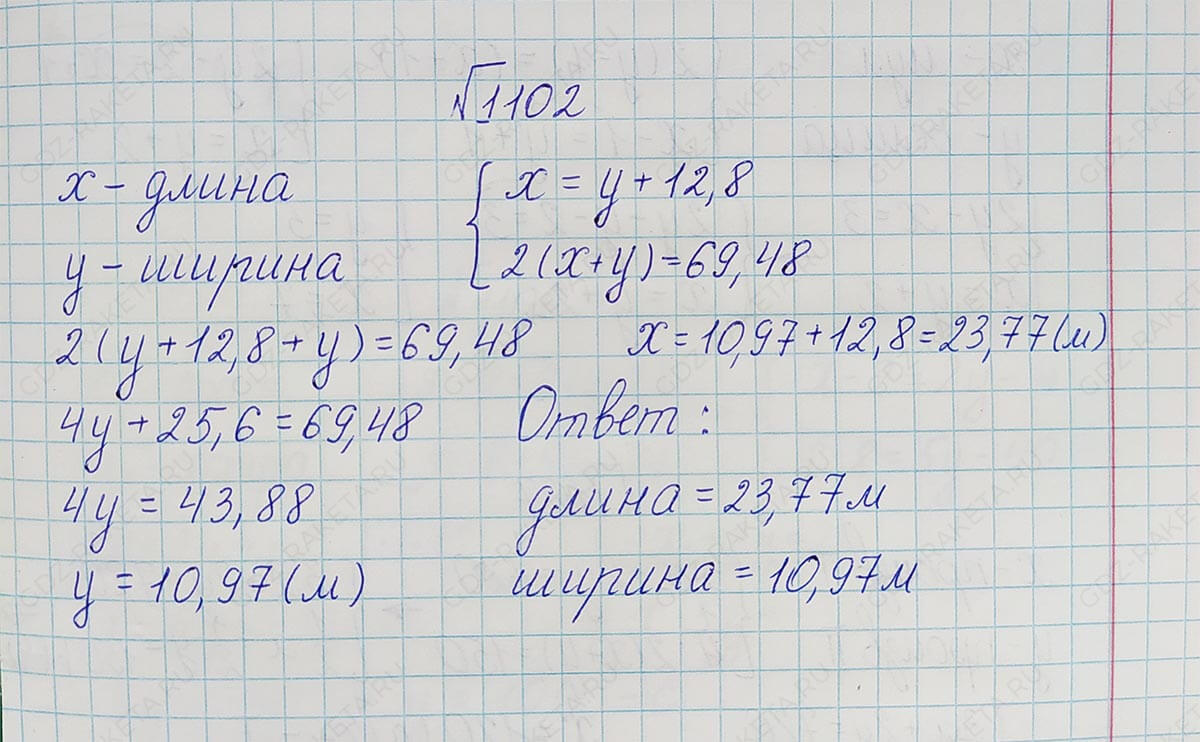 √1102
x - длина
y - ширина
{ x = y + 12,8
2(x+y)=69,48
2(y+12,8+y)=69,48
4y+25,6=69,48
4y = 43,88
y = 10,97(м)
x = 10,97+12,8=23,77(м)
Ответ:
длина = 23,77м
ширина = 10,97м
GDZ-RAKETA.RU